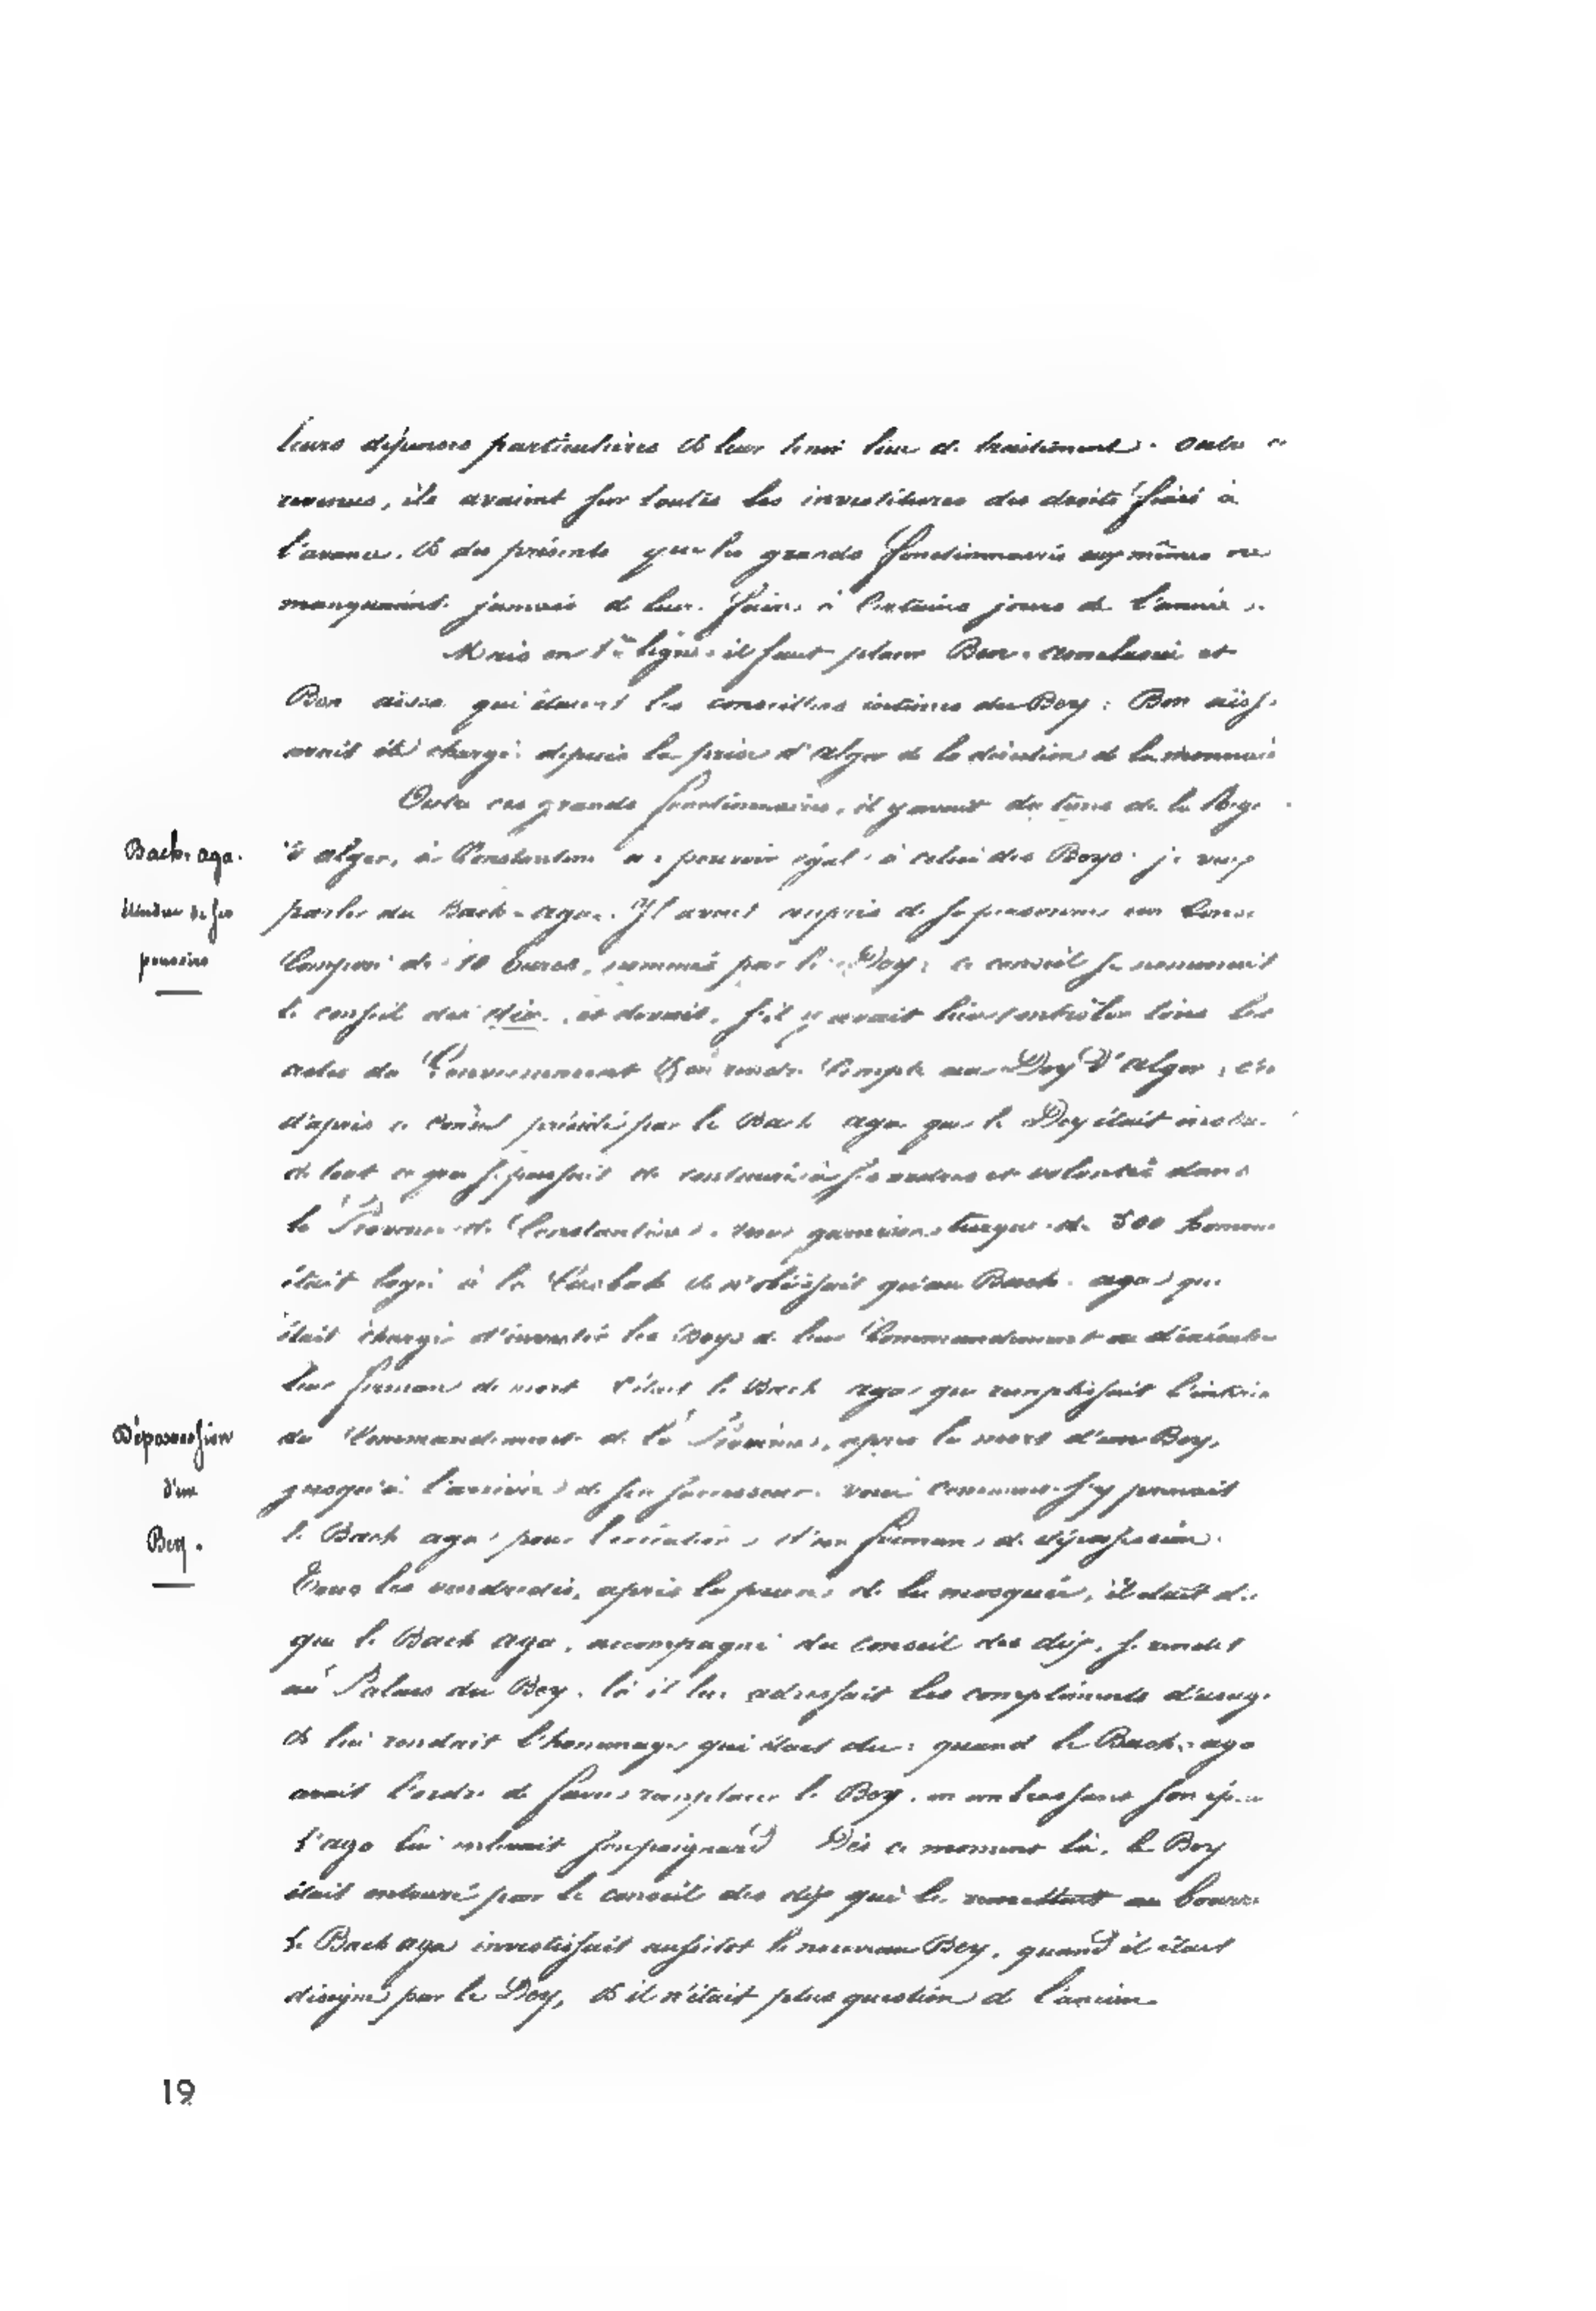 leurs dépenses particulières et leur tenir lieu de traitement. Outre ces
revenus, ils avaient sur toutes les investitures des droits fixés à
l'avance. et des présents que les grands fonctionnaires eux mêmes ne
manquaient jamais de leur faire à certains jours de l'année.
Mais en 1re ligne il faut placer Ben
Ben aïssa qui étaient les conseillers intimes du Bey : Ben aïssa
avait été chargé depuis la prise d'alger de la direction de la monnaie
Outre ces grands fonctionnaires, il y avait du tems de la
Bach-aga.
d'alger, à Constantine un pouvoir égal à celui des Beys. je veux
Étendue de ses
parler du Bach-aga. Il avait auprès de sa personne un
pouvoirs
Composé de 10 turcs, nommés par le Dey ; ce conseil se nommait
le conseil des dix. et devait, s'il y avait lieu contrôler tous les
actes du Gouvernement et en rendre compte au Dey d'Alger ;
d'après ce conseil présidé par le Bach aga que le Dey était
de tout ce qui se passait de contraire à ses ordres et volontés dans
la Province de Constantine. une garnison turque de 500 hommes
était logée à la Casbah et n'obéissait qu'au Bach-aga qui
était chargé d'investir les Beys de leur Commandement ou d'exécuter
leur firman de mort C'était le Bach aga qui remplissait l'intérim
Dépossession
du Commandement de la Province, après la mort d'un Bey,
d'un
jusqu'à l'arrivée de son successeur. voici comment s'y prenait
Bey.
le Bach aga pour l'exécution d'un firman de dépossession.
Tous les vendredis, après la prière de la mosquée, il était
que le Bach aga, accompagné du conseil des dix, se rendit
au Palais du Bey. là il lui adressait les compliments d'usage
et lui rendait l'hommage qui était du : quand le Bach-aga
avait l'ordre de faire remplacer le Bey. en embrassant son
l'aga lui enlevait son poignard Dès ce moment là, le Bey
était entouré par le conseil des dix qui le remettait au
Le Bach aga investissait aussitot le nouveau Bey, quand il était
désigné par le Dey, et il n'était plus question de l'ancien
19